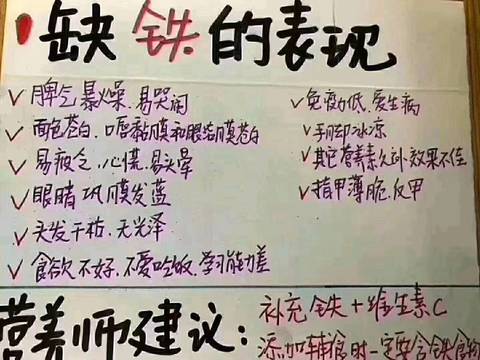 缺铁的表现
脾气暴燥、易哭闹
面色苍白、口唇黏膜和眼结膜苍白
易疲乏、心慌、易头晕
眼睛巩膜发蓝
头发干枯、无光泽
食欲不好、不爱吃饭、学习能力差
免疫力低、爱生病
手脚冰凉
其它营养素久补效果不佳
指甲薄脆、反甲
营养师建议:
补充铁+维生素C
添加辅食时一定要含铁食物